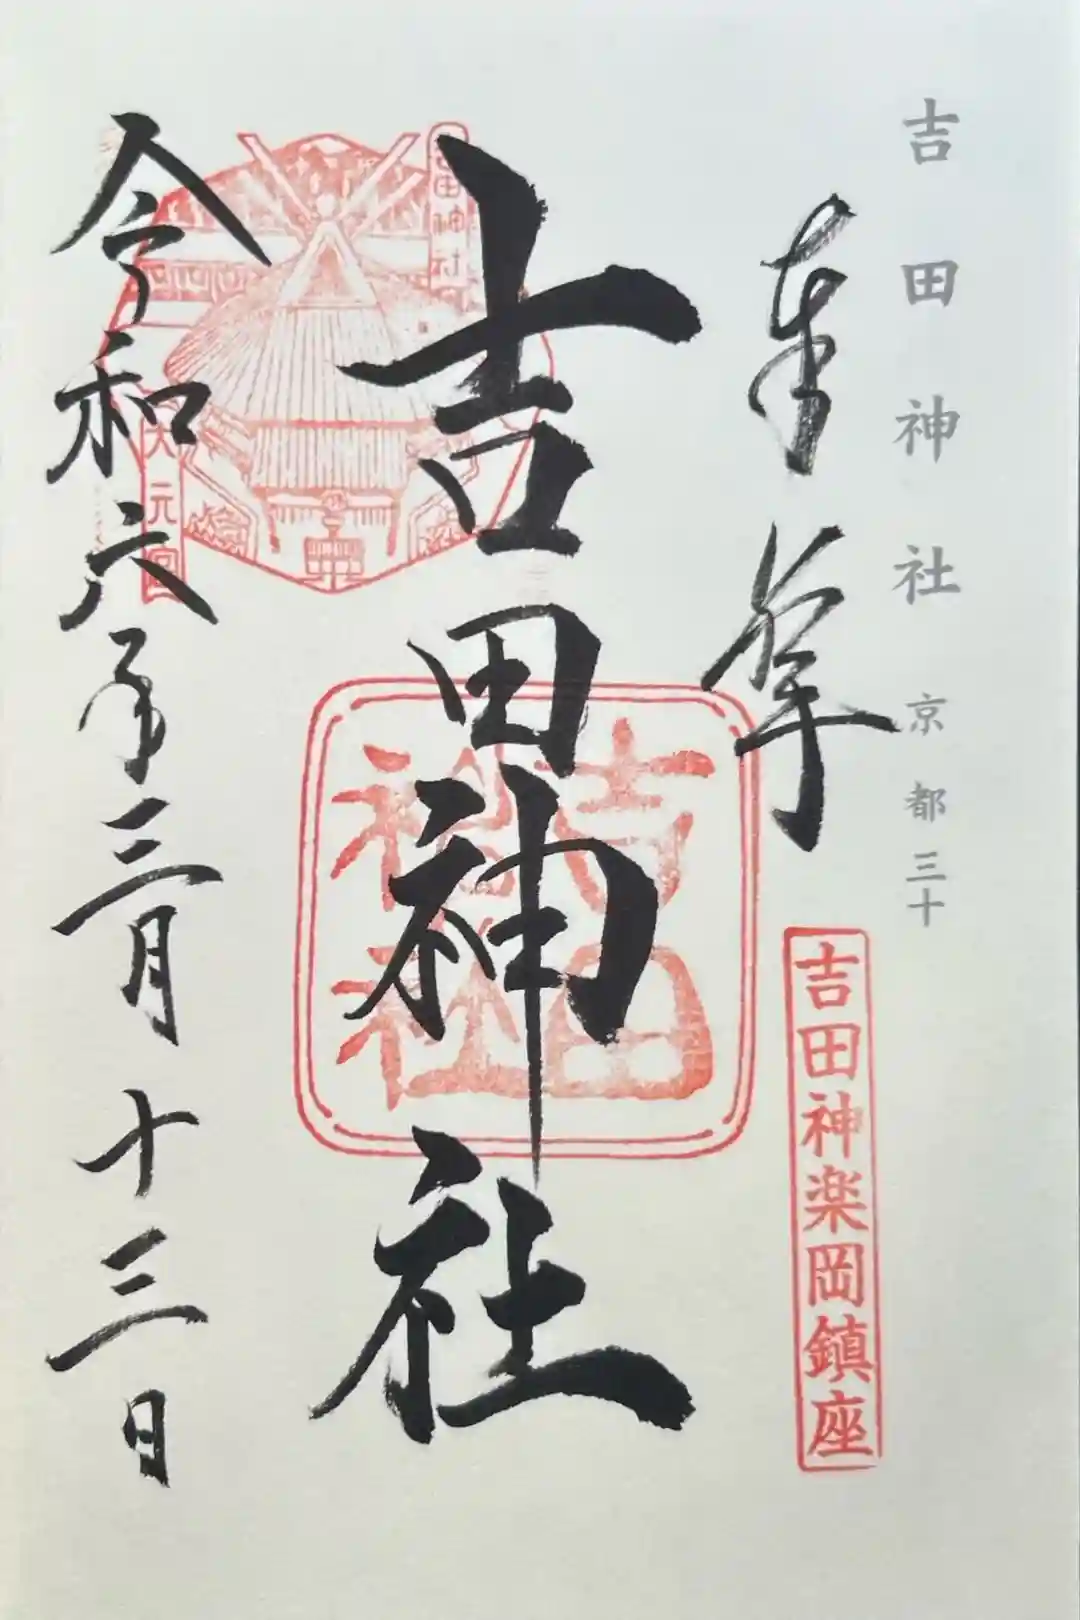 吉田神社 京都 三十
奉拝
吉田神楽岡鎮座
吉田神社
吉田神社
吉田神社
大元宮
令和六年三月十三日